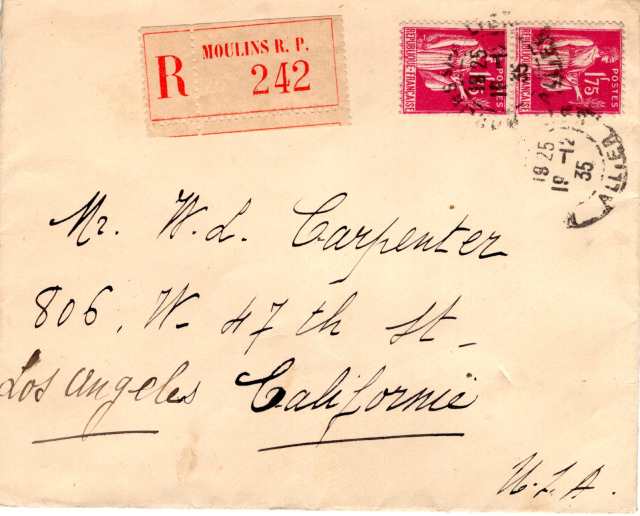 MOULINS R. P.
R 242
REPUBLIQUE-FRANÇAISE
1F75
POSTES
REPUBLIQUE-FRANÇAISE
1F75
POSTES
18 25
19 -12
35
ALLIER
Mr. W. L. Carpenter
806. W- 47 th St-
Los Angeles Californie
U.S.A.